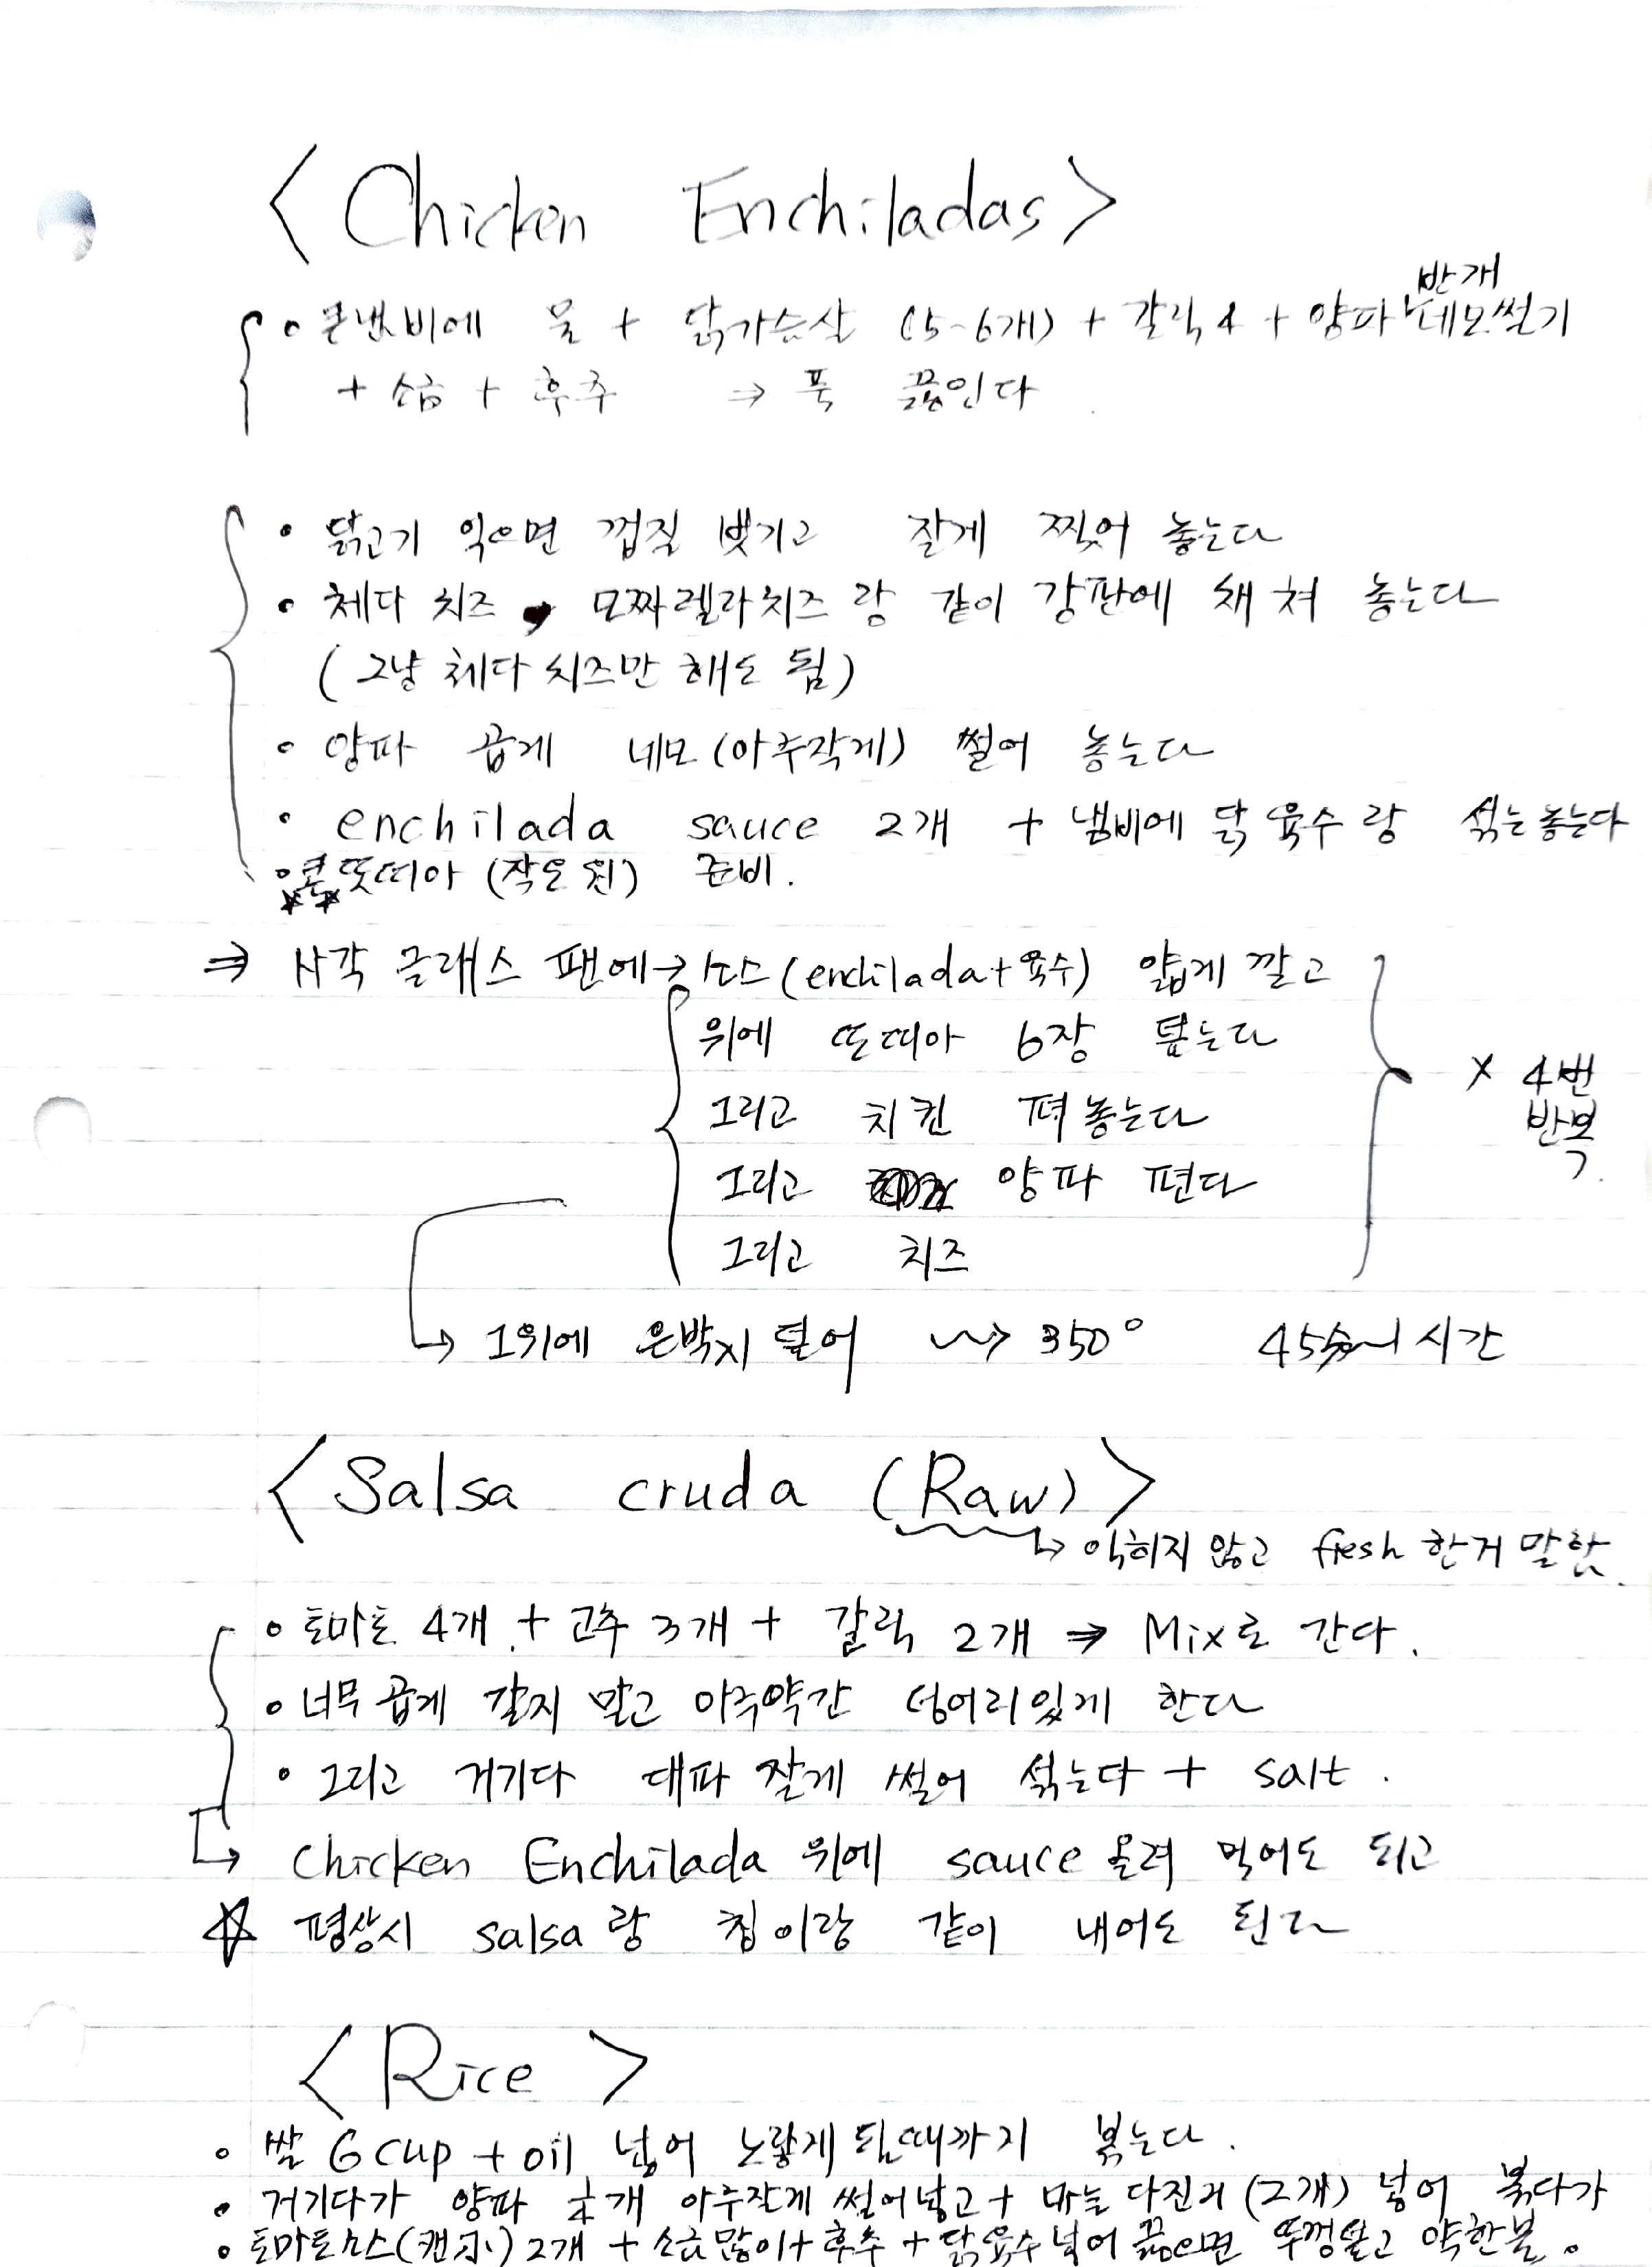 <Chicken Enchiladas>
반개
• 큰냄비에 물 + 닭가슴살 (5-6개) + 갈릭 4 + 양파 네모썰기
+ 소금 + 후추 ⇒ 푹 끓인다
• 닭고기 익으면 껍질 벗기고 잘게 찢어 놓는다
• 체다 치즈, 모짜렐라치즈 랑 같이 강판에 채 쳐 놓는다
(그냥 체다 치즈만 해도 됨)
• 양파 곱게 네모(아주작게) 썰어 놓는다
• enchilada sauce 2개 + 냄비에 닭 육수 랑 섞는놓는다
• 콘 또띠아 (작은 원) 준비.
⇒ 사각 글래스 팬에→ (enchilada+육수) 얇게 깔고
위에 또띠아 6장 덮는다
그리고 치킨 펴놓는다
그리고 양파 편다
그리고 치즈
x 4번
반복.
↳ 그위에 은박지 덮어 ⇝ 350° 45分~1시간
<Salsa cruda (Raw)>
↳ 익히지 않고 fresh 한거 말함.
• 토마토 4개 + 고추 3개 + 갈릭 2개 ⇒ Mix로 간다.
• 너무 곱게 갈지 말고 아주약간 덩어리있게 한다
• 그리고 거기다 대파 잘게 썰어 섞는다 + salt.
↳ Chicken Enchilada 위에 sauce 올려 먹어도 되고
☆ 평상시 salsa 랑 칩이랑 같이 내어도 된다
<Rice>
• 쌀 6 cup + oil 넣어 노랗게 될때까지 볶는다.
• 거기다가 양파 개 아주잘게 썰어넣고 + 마늘 다진거 (2개) 넣어 볶다가
• 토마토소스(캔小) 2개 + 소금많이 + 후추 + 닭육수넣어 끓으면 뚜껑덮고 약한불。